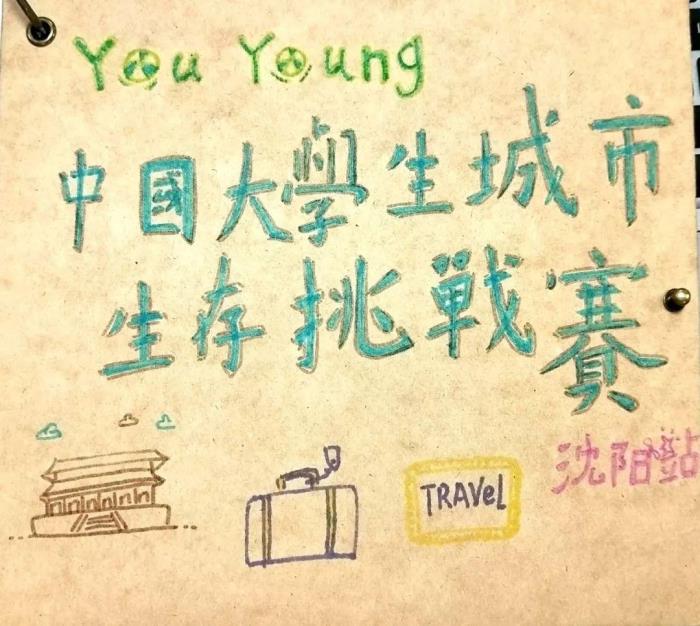 You Young
中國大學生城市
生存挑戰賽
TRAVeL
沈阳站